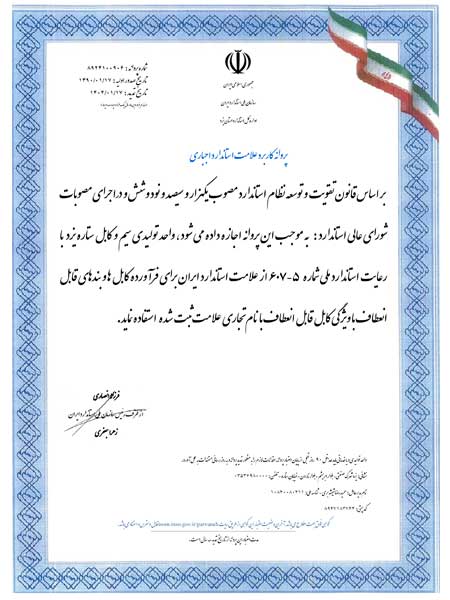 شماره پروانه: ۸۹۲۴۱۰۰۹۰۴
تاریخ صدور اولیه: ۱۳۹۰/۰۱/۱۷
تاریخ تمدید: ۱۴۰۳/۰۱/۱۷
جمهوری اسلامی ایران
سازمان ملی استاندارد ایران
اداره کل استاندارد استان یزد
پروانه کاربرد علامت استاندارد اجباری
بر اساس قانون تقویت و توسعه نظام استاندارد مصوب یکهزار و سیصد و نود و شش و در اجرای مصوبات
شورای عالی استاندارد: به موجب این پروانه اجازه داده می شود، واحد تولیدی سیم و کابل ستاره یزد با
رعایت استاندارد ملی شماره ۵-۶۰۷ از علامت استاندارد ایران برای فرآورده کابل ها و بندهای قابل
انعطاف با ویژگی کابل قابل انعطاف با نام تجاری علامت ثبت شده استفاده نماید.
فرزانه انصاری
از طرف رئیس سازمان ملی استاندارد ایران
زهرا جعفری
مدت اعتبار این پروانه از تاریخ تمدید سه سال است.